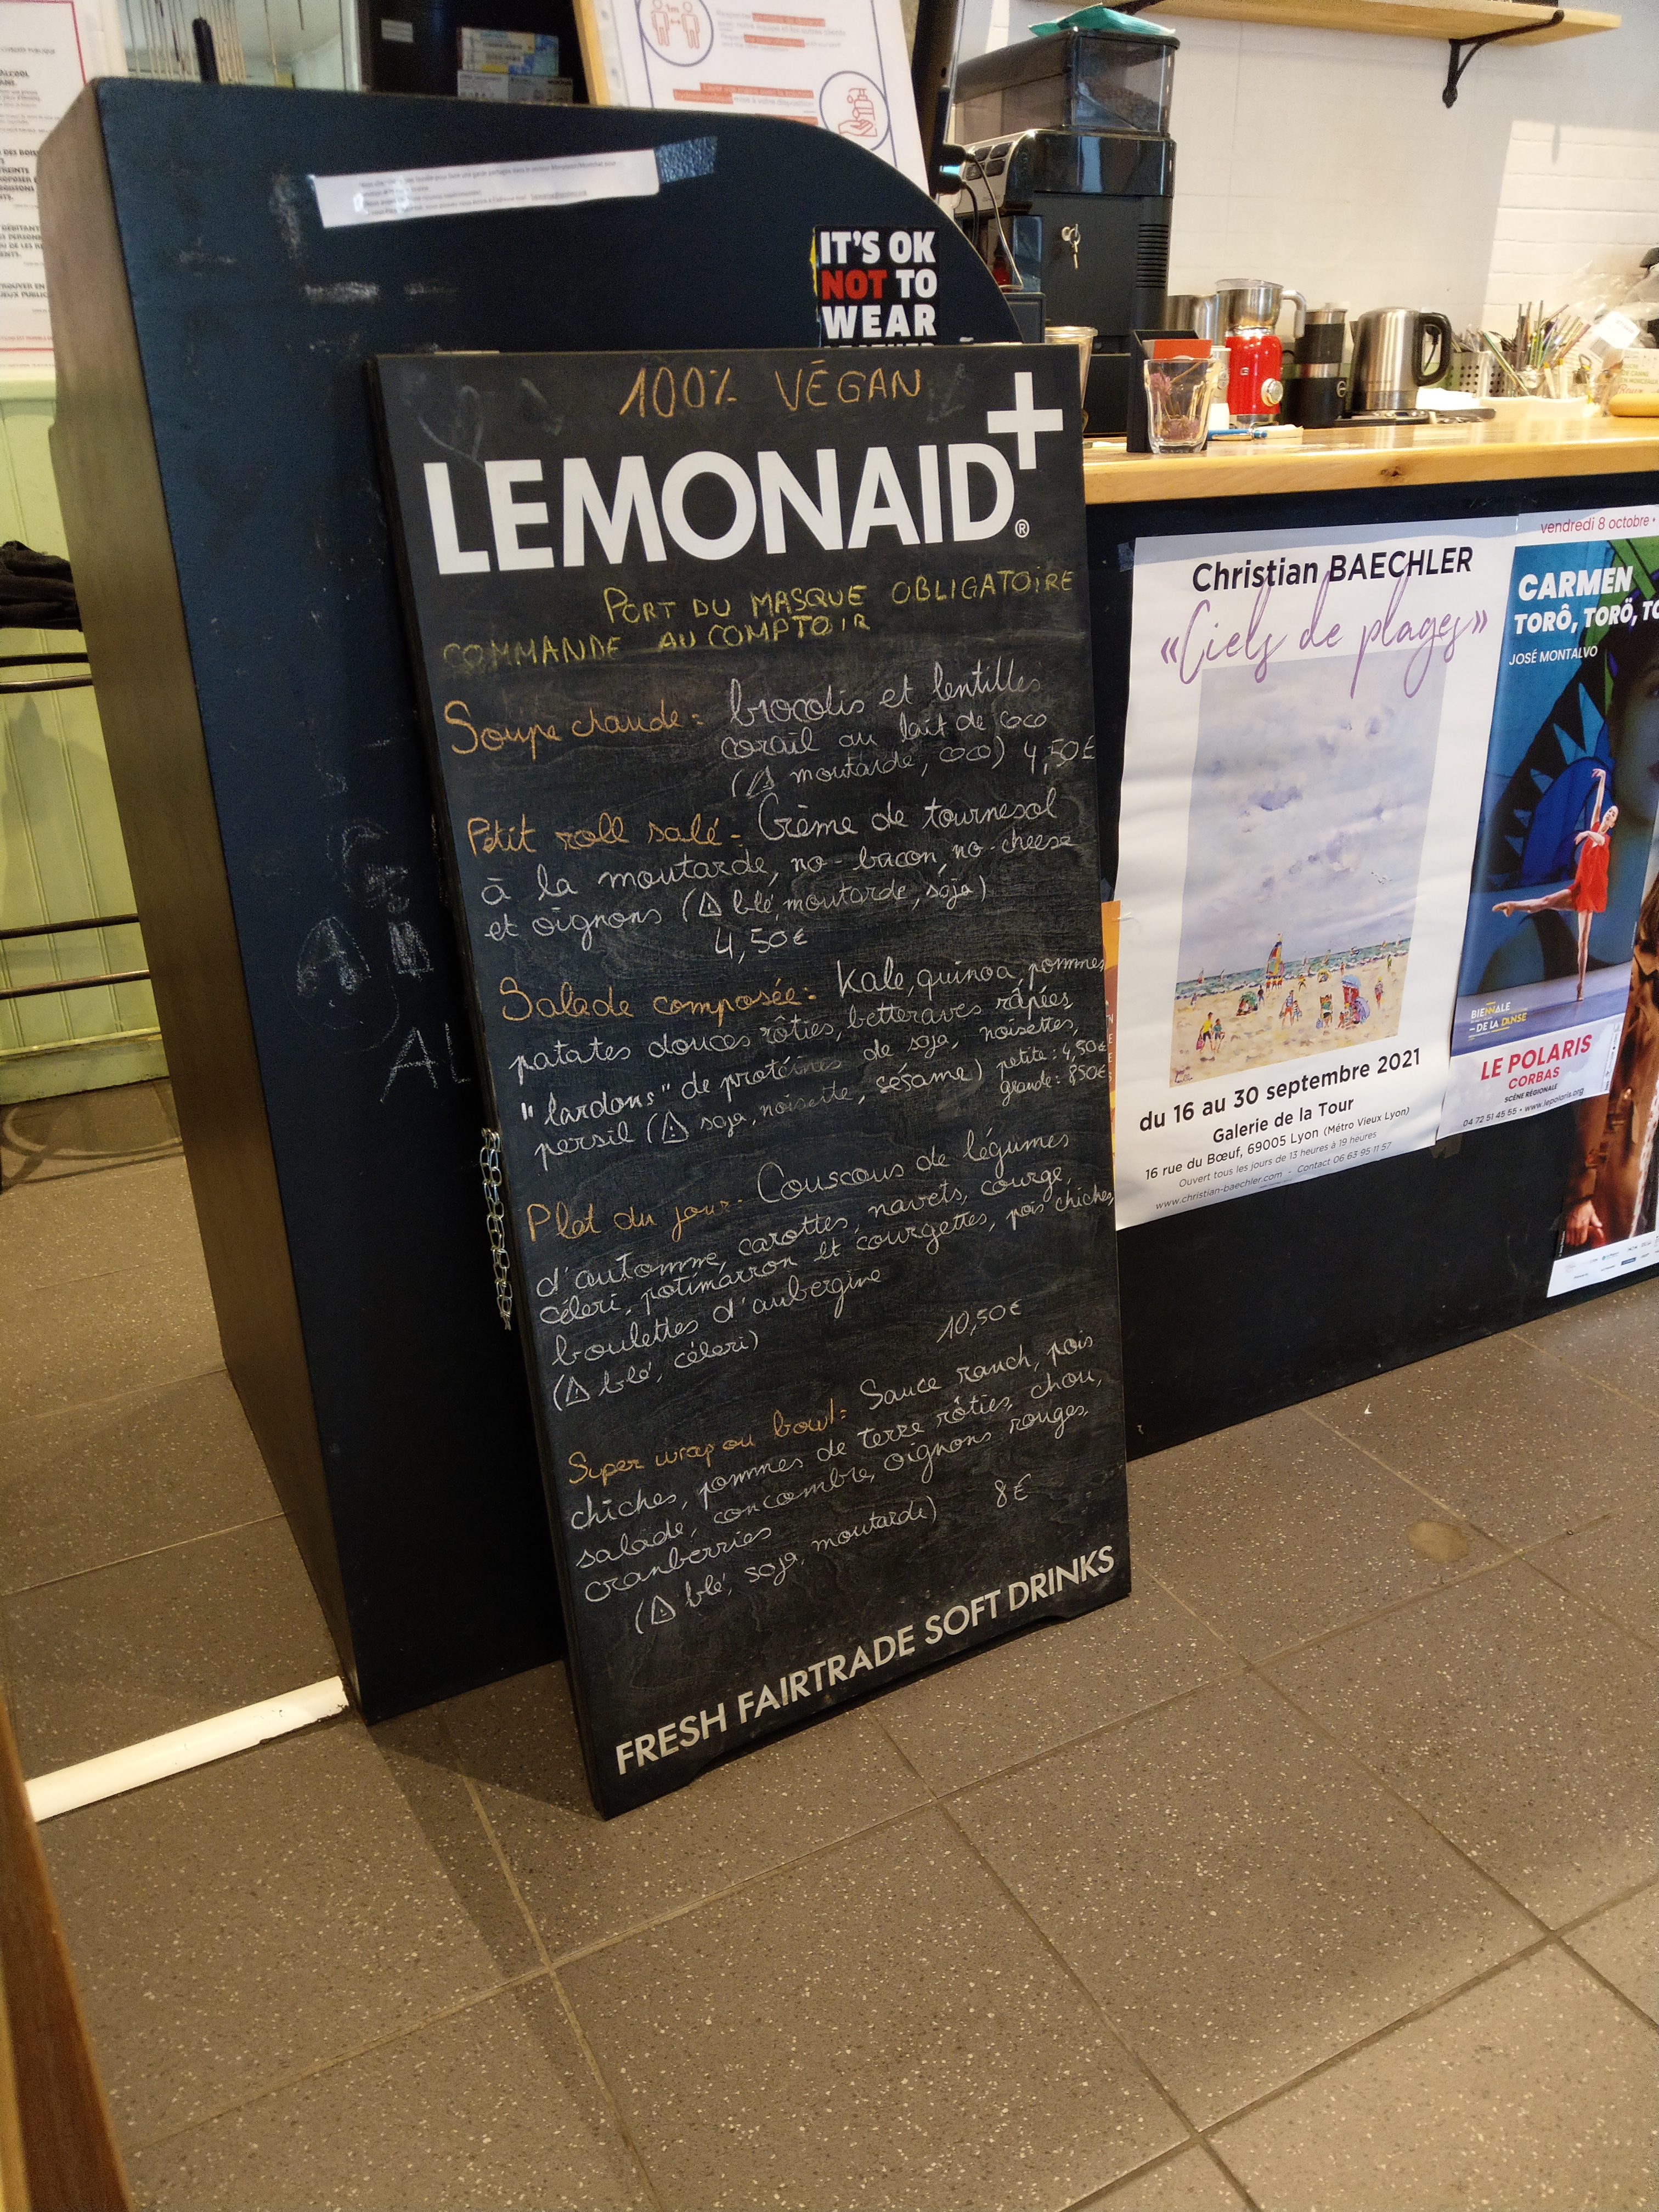 IT'S OK
NOT TO
WEAR
100% VÉGAN
LEMONAID+®
PORT DU MASQUE OBLIGATOIRE
COMMANDE AU COMPTOIR
Soupe chaude : brocolis et lentilles
corail au lait de coco
(⚠ moutarde, coco) 4,50€
Petit roll salé - Crème de tournesol
à la moutarde, no-bacon, no-cheese
et oignons (⚠ blé, moutarde, soja)
4,50€
Salade composée : Kale, quinoa, pommes
patates douces rôties, betteraves râpées,
"lardons" de protéines de soja, noisettes,
persil (⚠ soja, noisette, sésame) petite : 4,50€
grande : 8,50€
Plat du jour - Couscous de légumes
d'automne, carottes, navets, courge,
céleri, potimarron et courgettes, pois chiches,
boulettes d'aubergine
(⚠ blé, céleri)
10,50€
Super wrap ou bowl : Sauce ranch, pois
chiches, pommes de terre rôties, chou,
salade, concombre, oignons rouges,
cranberries
(⚠ blé, soja, moutarde) 8€
FRESH FAIRTRADE SOFT DRINKS
AL
Christian BAECHLER
«Ciels de plages»
du 16 au 30 septembre 2021
Galerie de la Tour
16 rue du Bœuf, 69005 Lyon (Métro Vieux Lyon)
Ouvert tous les jours de 13 heures à 19 heures
www.christian-baechler.com - Contact 06 63 95 11 57
vendredi 8 octobre •
CARMEN
TORÔ, TORÖ, TO
JOSÉ MONTALVO
BIENNALE
DE LA DANSE
LE POLARIS
CORBAS
SCÈNE RÉGIONALE
04 72 51 45 55 • www.lepolaris.org